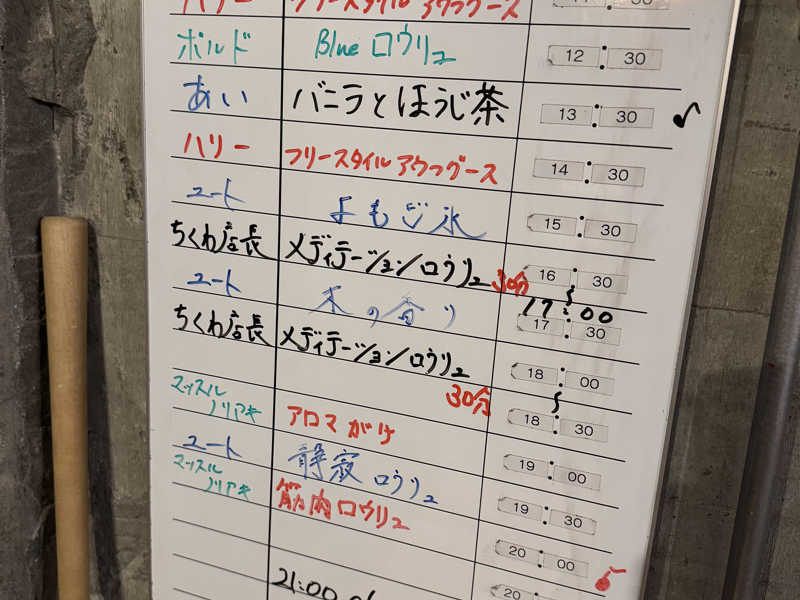 ハリー フリースタイル アウフグース 11:30
ボルド Blue ロウリュ 12:30
あい バニラとほうじ茶 13:30
ハリー フリースタイル アウフグース 14:30
ユート よもぎ氷 15:30
ちくわ店長 メディテーションロウリュ 30分 16:30
17:00
ユート 木の香り 17:30
ちくわ店長 メディテーションロウリュ 18:00
30分 18:30
マッスル
ノリアキ アロマがけ 19:00
ユート 静寂ロウリュ 19:30
マッスル
ノリアキ 筋肉ロウリュ 20:00
21:00 20